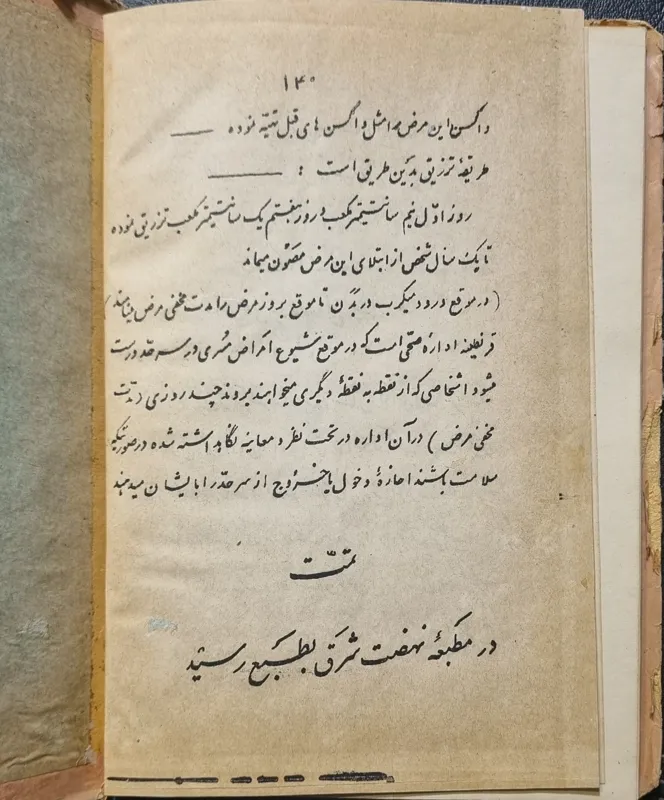 ۱۴۰
واکسن این مرض را مثل واکسن های قبل تهیه نموده
طریقهٔ تزریق بدین طریق است :
روز اوّل نیم سانتیمتر مکعب و روز هفتم یک سانتیمتر مکعب تزریق نموده
تا یک سال شخص از ابتلای این مرض مصون میماند
(در موقع ورود میکرب در بدن تا موقع بروز مرض را مدت مخفی مرض مینامند)
قرنطینه اداره صحّی است که در موقع شیوع امراض مسری در سرحد درست
میشود اشخاصی که از نقطه به نقطهٔ دیگری میخواهند بروند چند روزی (مدّت
مخفی مرض) در آن اداره در تحت نظر و معاینه نگاهداشته شده در صورتیکه
سلامت باشند اجازهٔ دخول یا خروج از سرحد را بایشان میدهند
تمّت
در مطبعهٔ نهضت شرق بطبع رسید